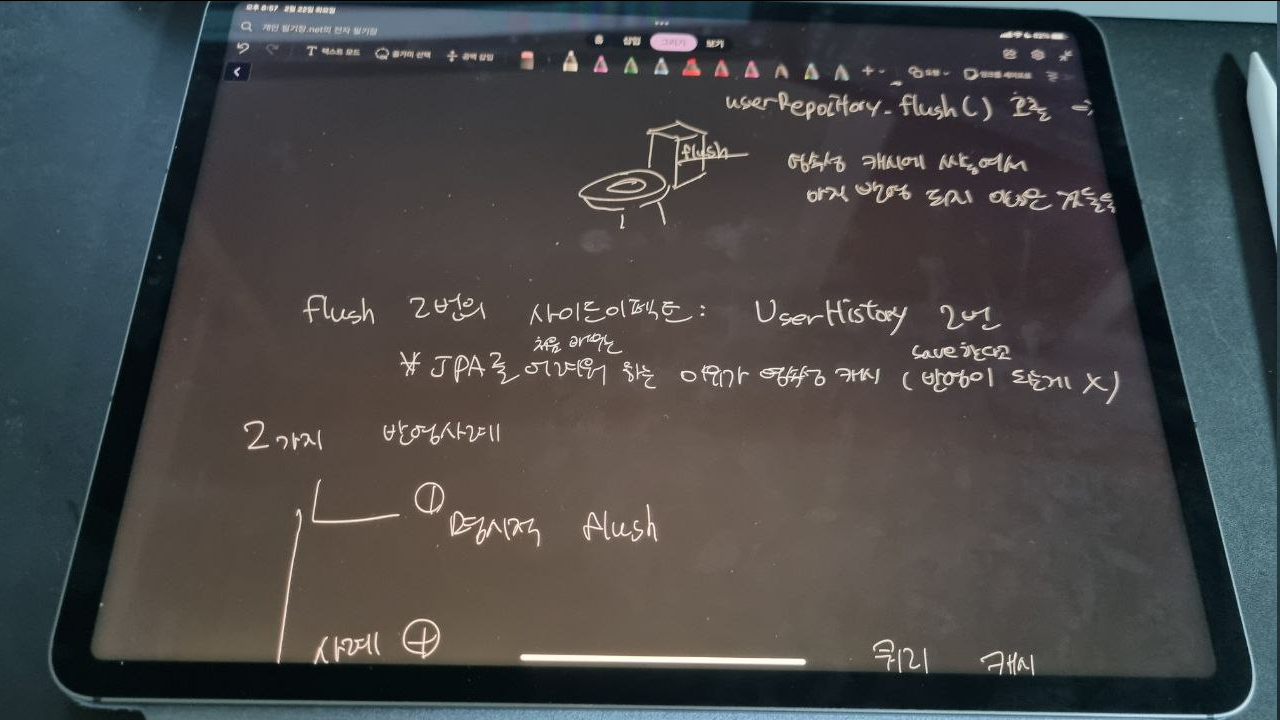 오후 6:57 2월 22일 화요일
개인 필기장.net의 전자 필기장
홈 삽입 그리기 보기
텍스트 모드 올가미 선택 공백 삽입 도형
userRepository.flush() 호출 ⇒
flush
영속성 캐시에 쌓여서
아직 반영 되지 않은 것들을
flush 2번의 사이드이펙트 : UserHistory 2번
처음 배우는 save 한다고
* JPA를 어려워 하는 이유가 영속성 캐시 ( 반영이 되는게 X )
2가지 반영사례
① 명시적 flush
사례 쿼리 캐시